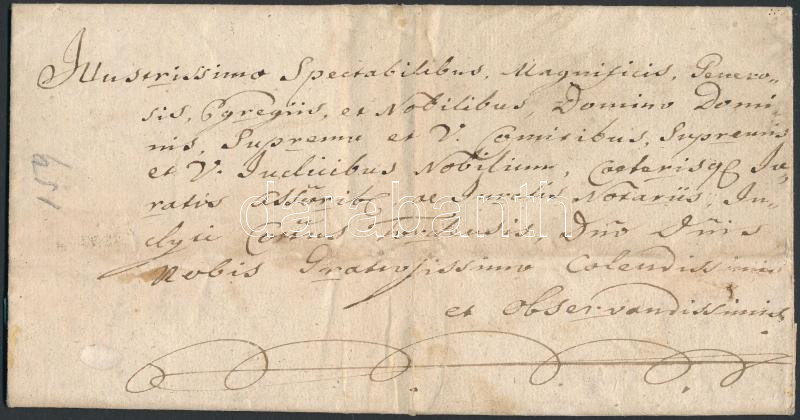 Illustrissimo Spectabilibus, Magnificis, Genero-
sis, Egregiis, et Nobilibus, Domino Domi-
nis, Supremo et V. Comitibus, Supremis
et V. Judicibus Nobilium, Coeterisq Ju-
ratis Assorib ac Juratis Notariis, In-
clyti Cottus, Dno Dnis
Nobis Gratiosissimo Colendissimis
et Observandissimis
159
darabanth